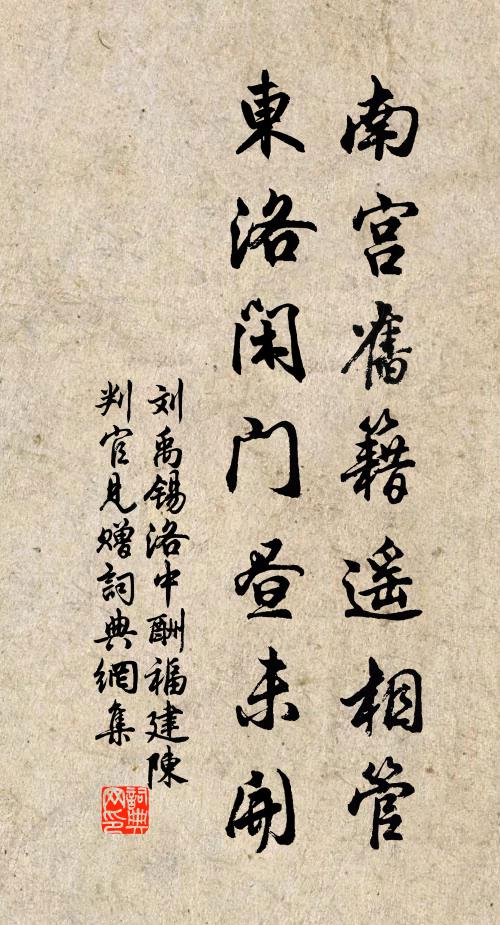 南宫舊籍遥相管
東洛闲门昼未開
刘禹锡洛中酬福建陳
判官见赠詞典網集
詞典网印